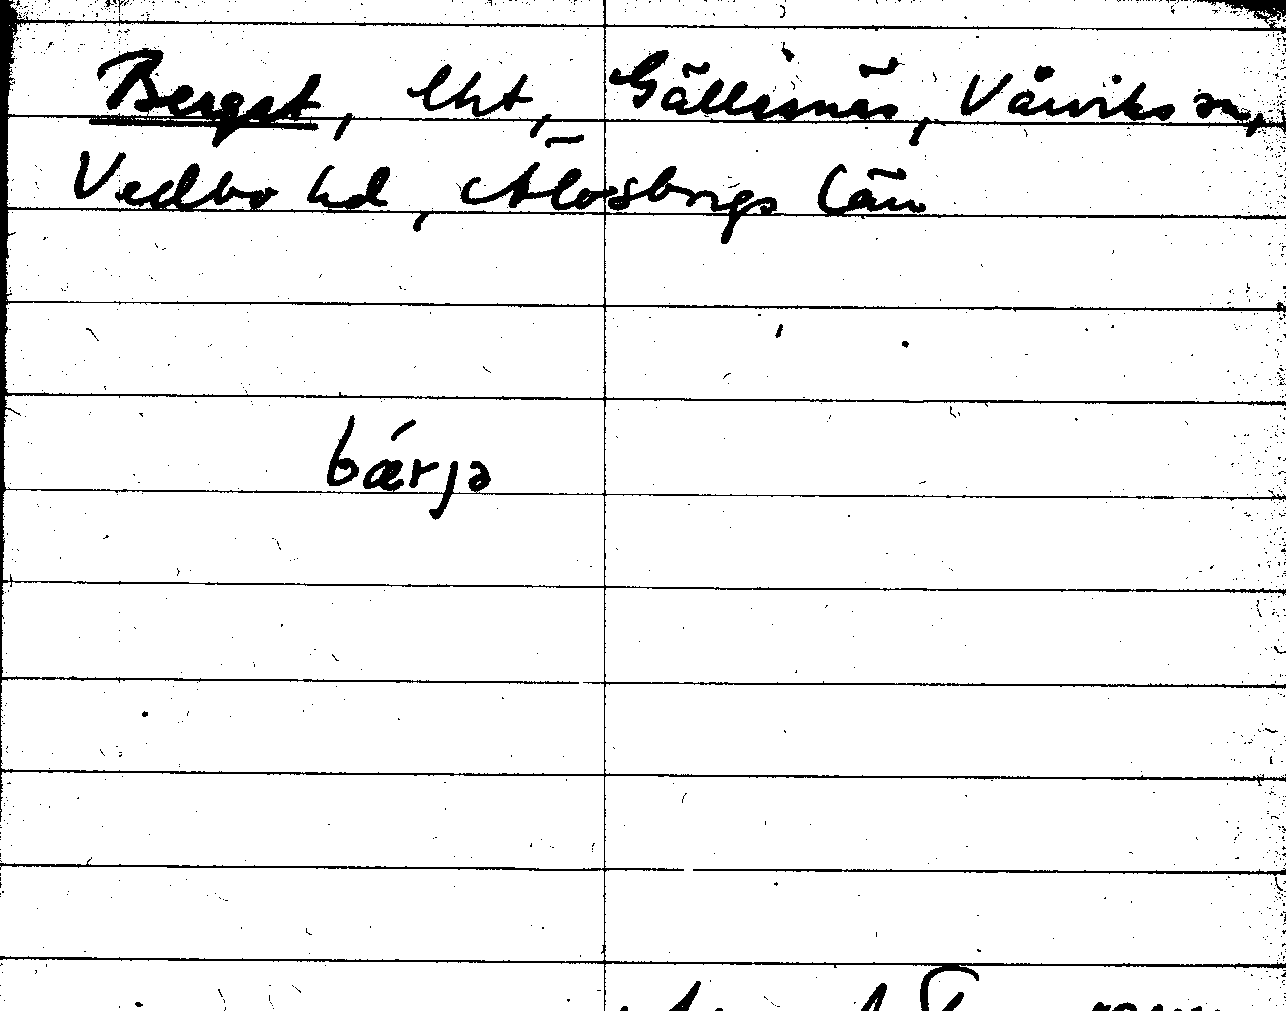 Berget, lht, Gällesnäs, Vårviks sn,
Vedbo hd, Älvsborgs län
bǽrjə